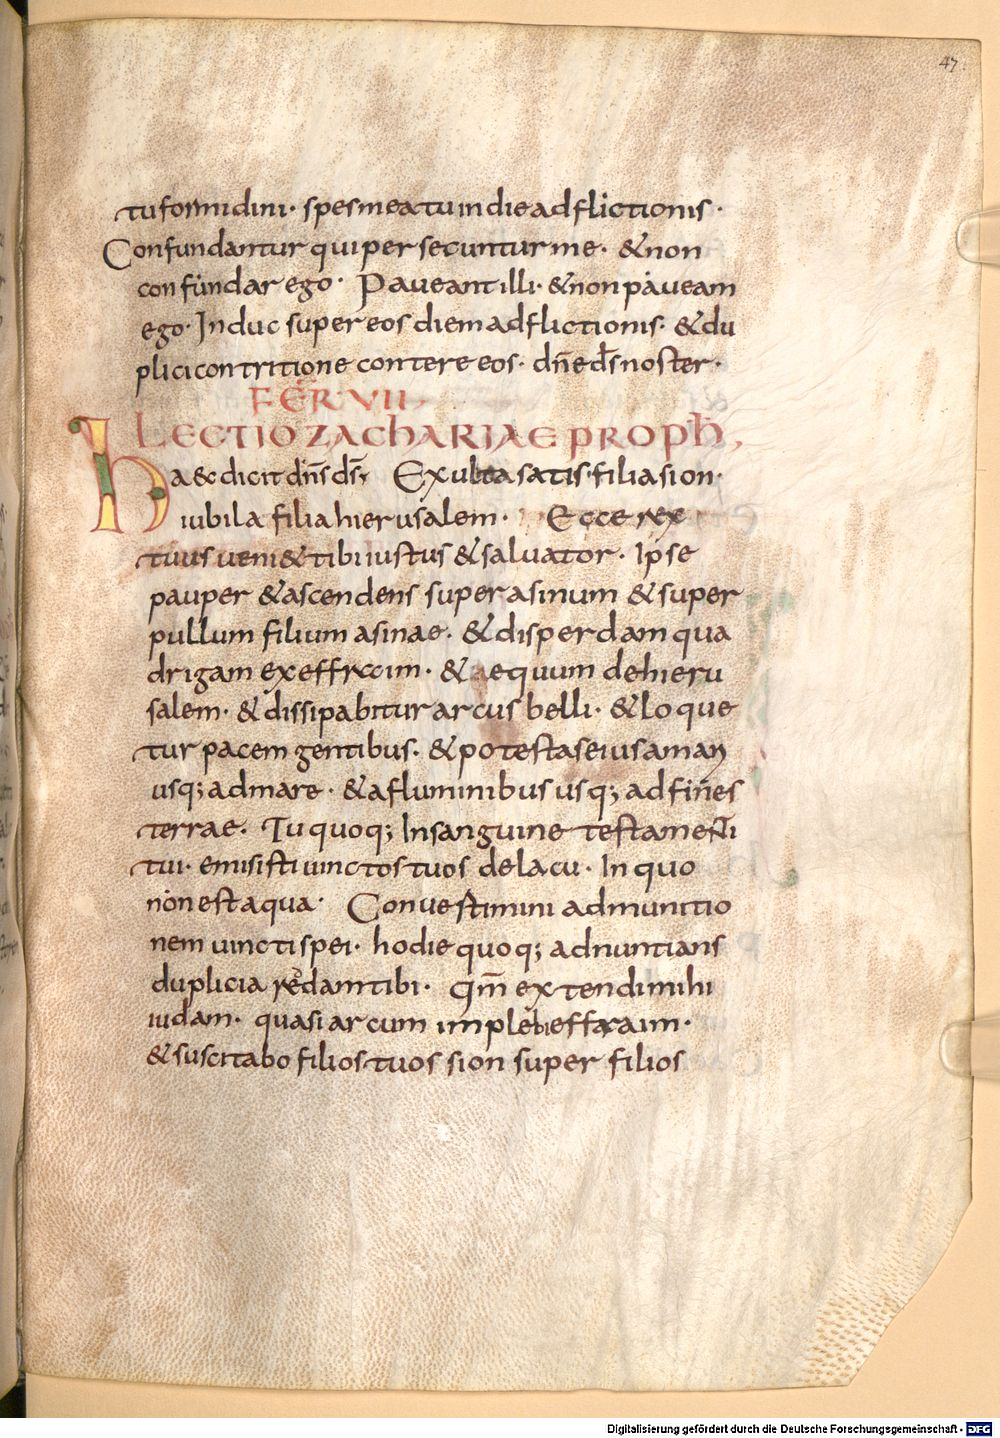 47.
tu formidini· spes mea tu in die adflictionis·
Confundantur qui persecuntur me· & non
confundar ego· Paueant illi· & non paueam
ego· Induc super eos diem adflictionis· & du
plici contritione contere eos· dn̄e d̄s noster·
FER̄ VII,
LECTIO ZACHARIAE PROPH̄,
Ha&c dicit dn̄s d̄s· Exulta satis· filia sion·
iubila filia hierusalem· Ecce rex
tuus ueni& tibi iustus & saluator· Ipse
pauper & ascendens super asinum & super
pullum filium asinae· & disperdam qua
drigam ex effrcoim· & aequum de hieru
salem· & dissipabitur arcus belli· & loque
tur pacem gentibus· & potestas eius a mari
usq; ad mare· & a fluminibus usq; ad fines
terrae· Tu quoq; In sanguine testamenti
tui· emisisti uinctos tuos de lacu· In quo
non est aqua· Conuestimini ad munitio
nem uincti spei· hodie quoq; adnuntians
duplicia reddam tibi· qm̄ extendi mihi
iudam· quasi arcum impleui effraim·
& suscitabo filios tuos sion super filios
Digitalisierung gefördert durch die Deutsche Forschungsgemeinschaft - DFG